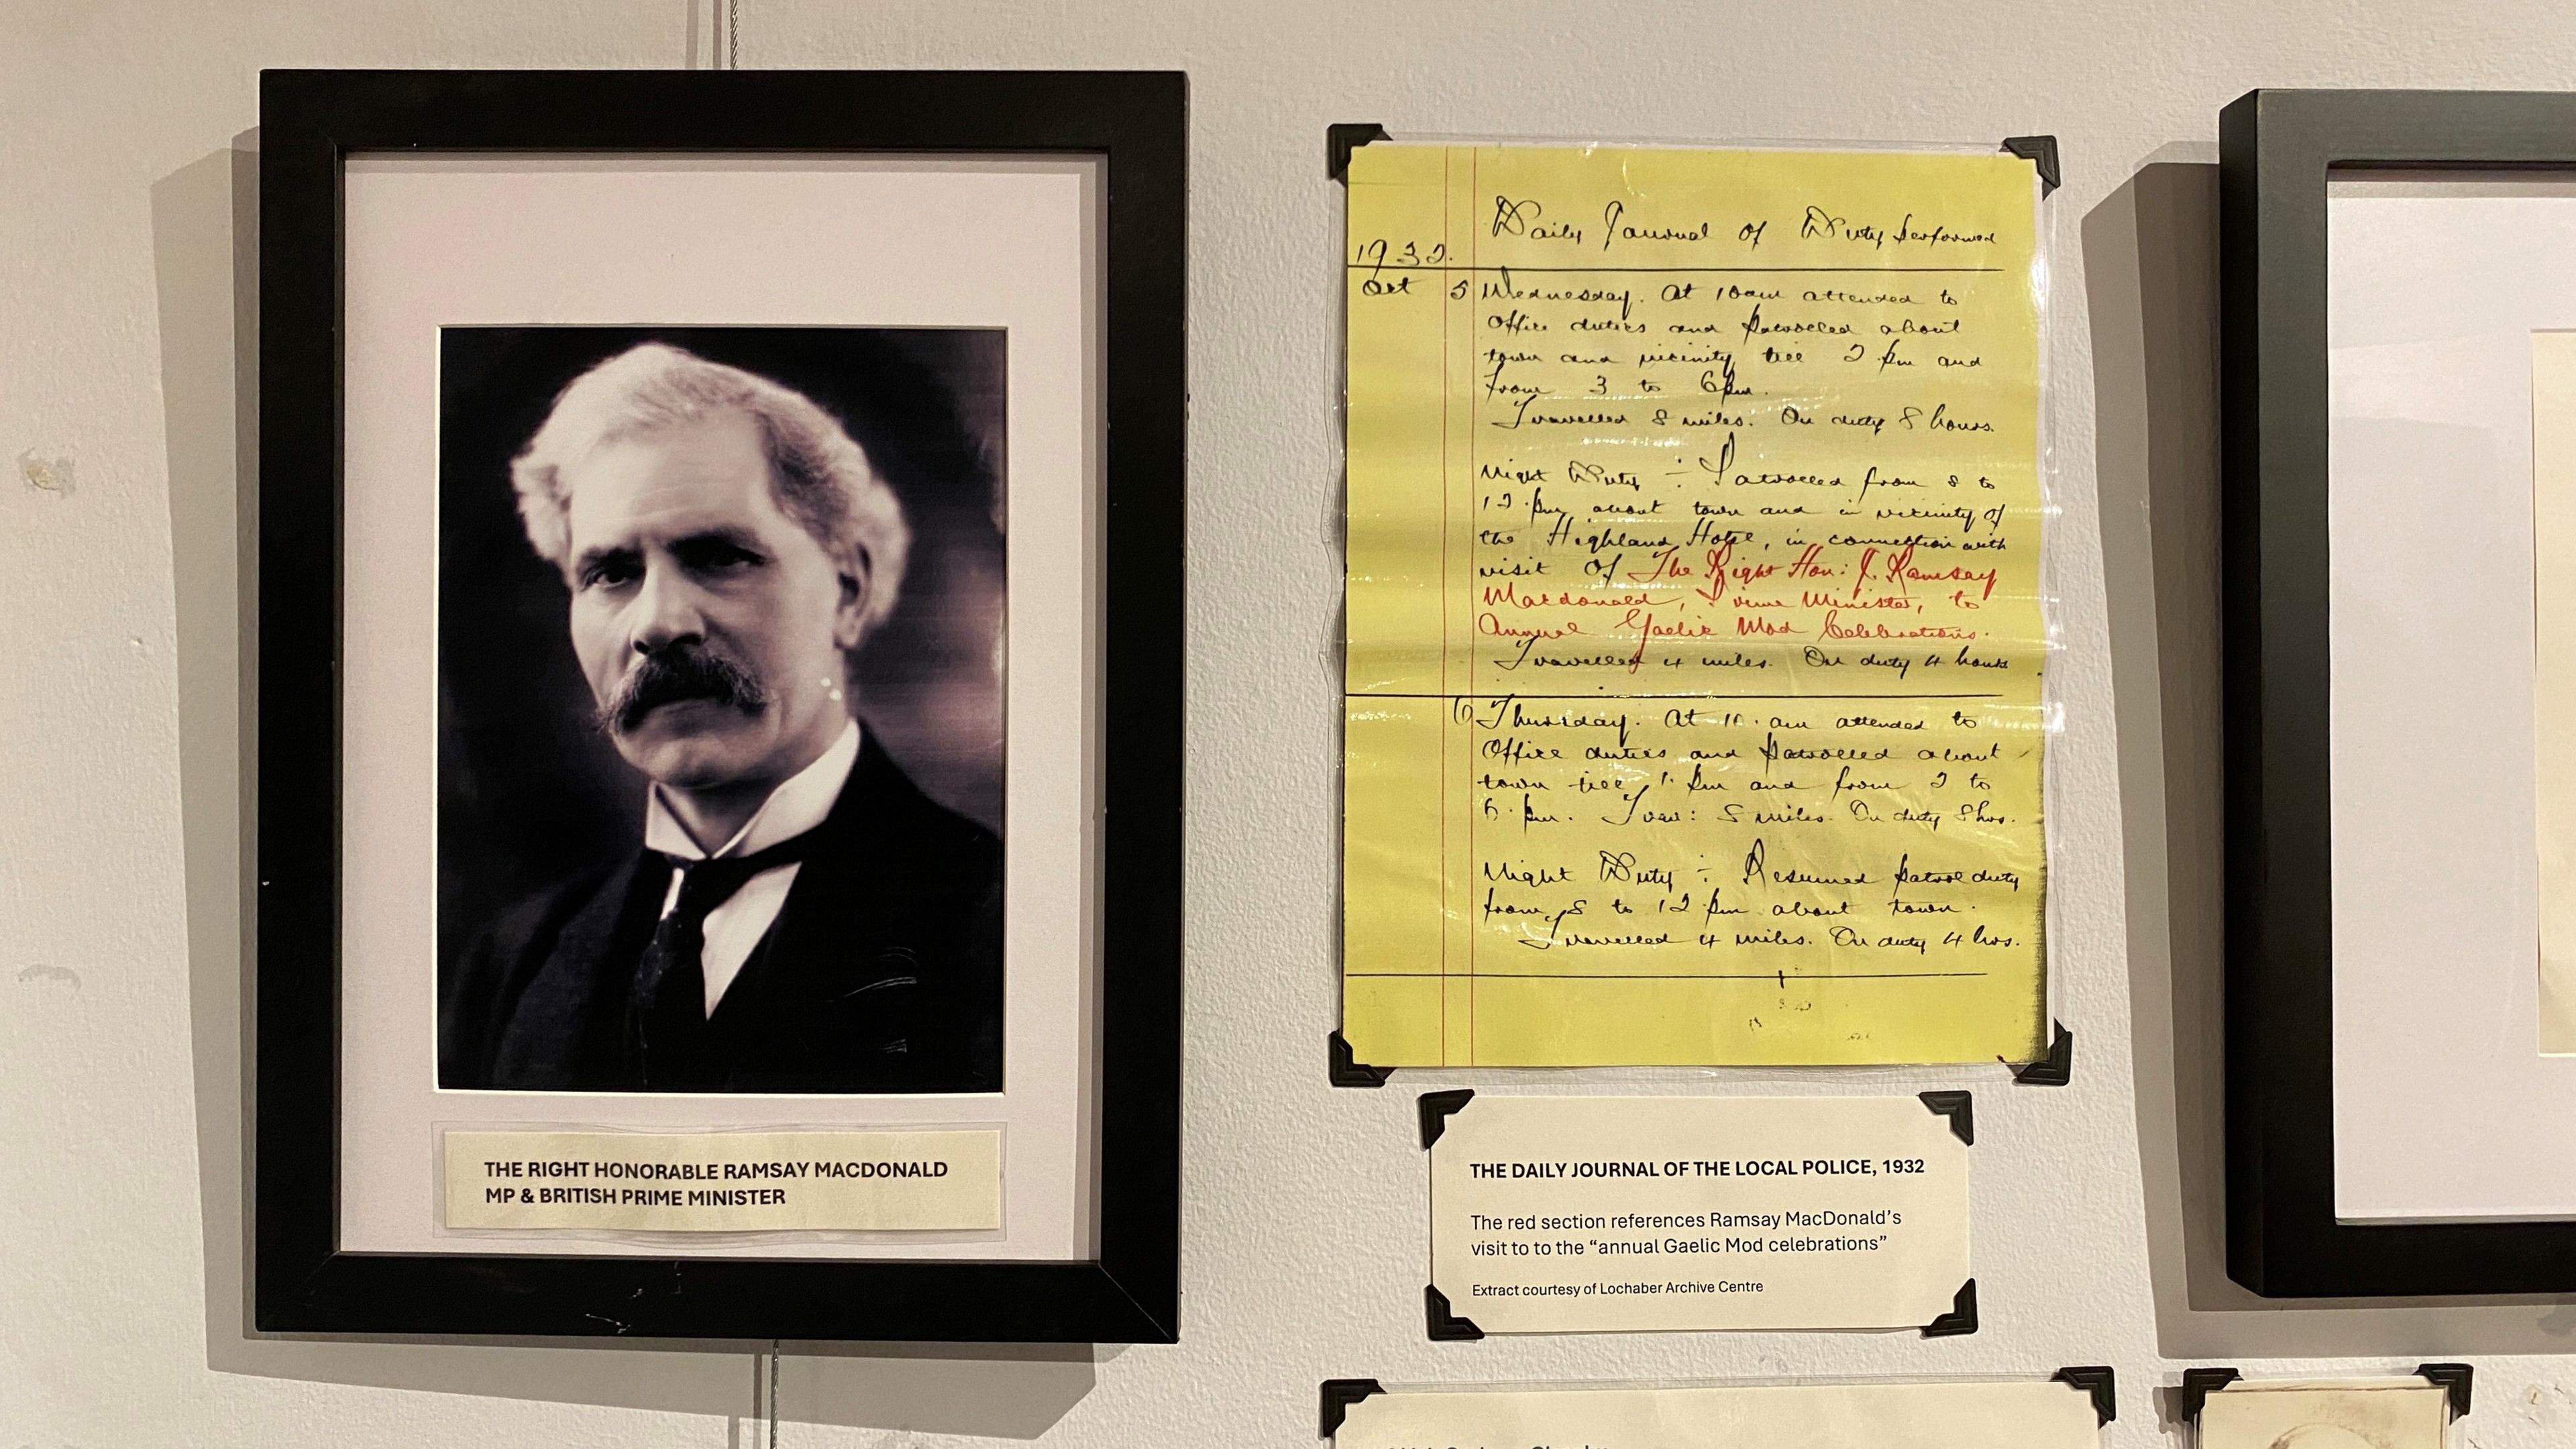 THE RIGHT HONORABLE RAMSAY MACDONALD
MP & BRITISH PRIME MINISTER
Daily Journal of Duty performed
1932.
Oct 5 Wednesday. At 10am attended to
Office duties and patrolled about
town and vicinity till 2 pm and
from 3 to 6pm.
Travelled 8 miles. On duty 8 hours.
Night Duty ÷ Patrolled from 8 to
12 pm about town and in vicinity of
the Highland Hotel, in connection with
visit of The Right Hon: J. Ramsay
Macdonald, Prime Minister, to
Annual Gaelic Mod Celebrations.
Travelled 4 miles. On duty 4 hours
6 Thursday. At 10. am attended to
Office duties and patrolled about
town till 1. pm and from 2 to
6. pm. Trav: 8 miles. On duty 8hrs.
Night Duty ÷ Resumed patrol duty
from 8 to 12 pm about town.
Travelled 4 miles. On duty 4 hrs.
THE DAILY JOURNAL OF THE LOCAL POLICE, 1932
The red section references Ramsay MacDonald's
visit to to the “annual Gaelic Mod celebrations”
Extract courtesy of Lochaber Archive Centre